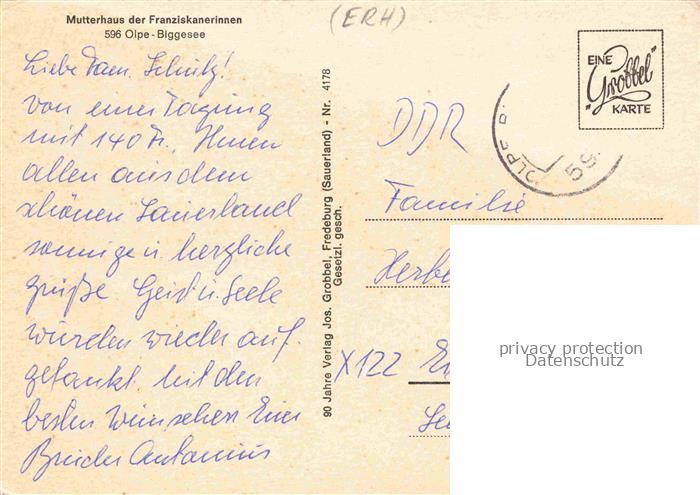 Mutterhaus der Franziskanerinnen
596 Olpe - Biggesee
(ERH)
Liebe Fam. Schulz!
von einer Tagung
mit 140 Fr., Ihnen
allen aus dem
schönen Sauerland
sonnige u. herzliche
Grüße. Geist u. Seele
wurden wieder auf-
getankt. Mit den
besten Wünschen Euer
Bruder Antonius
90 Jahre Verlag Jos. Grobbel, Fredeburg (Sauerland) - Nr. 4178
Gesetzl. gesch.
EINE
"Grobbel"
KARTE
OLPE B
59
DDR
Familie
Herbe
X122
privacy protection
Datenschutz